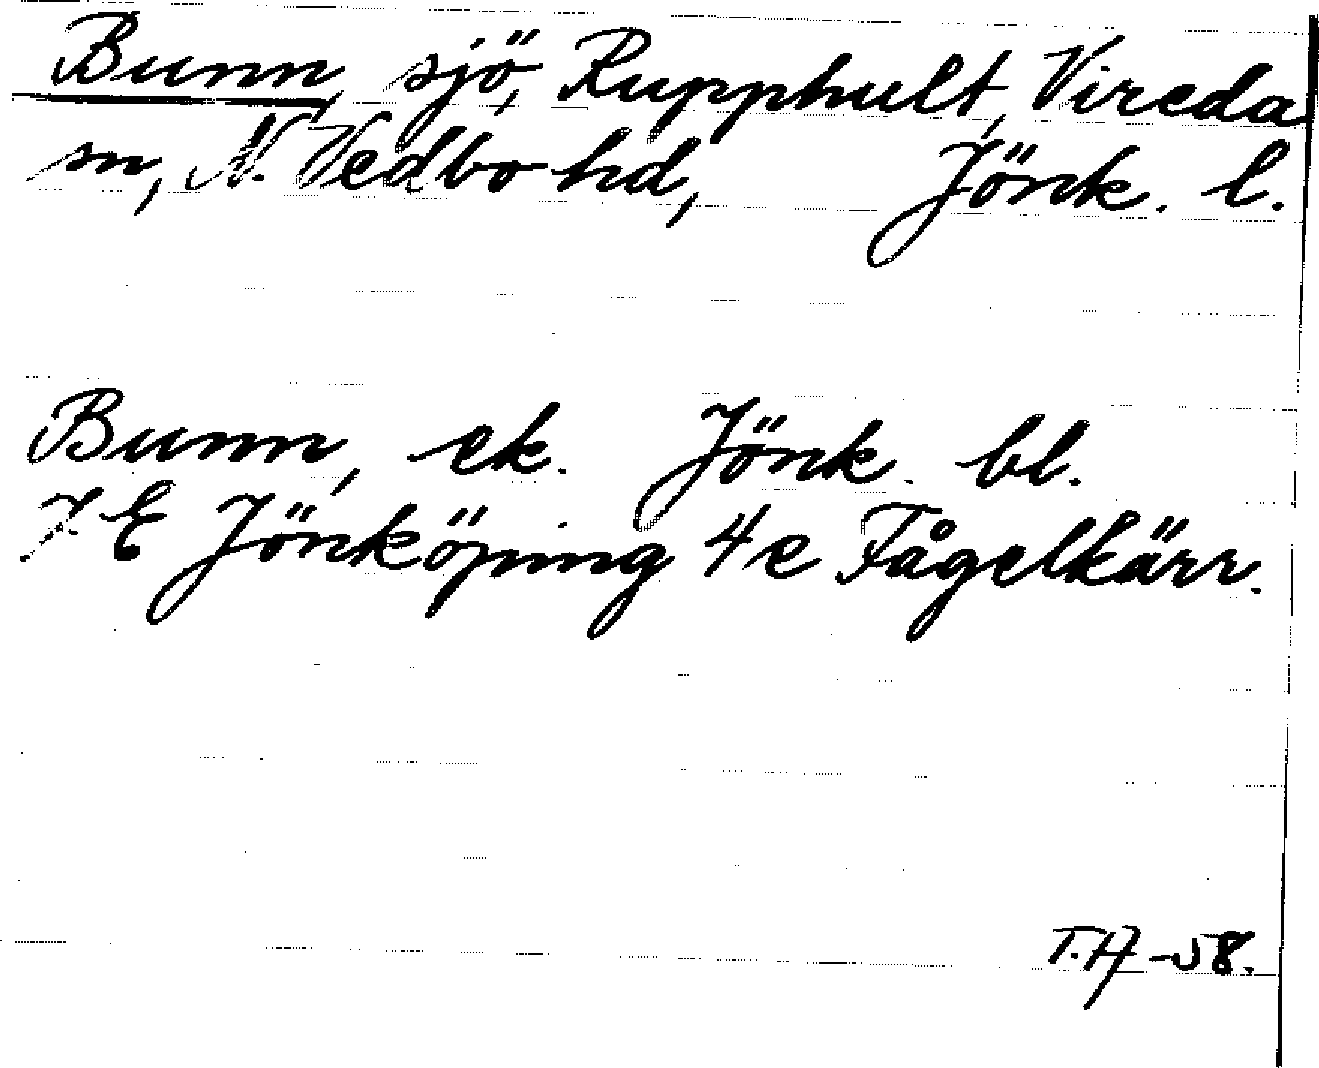 Bunn, sjö, Rupphult, Vireda
sn, N. Vedbo hd, Jönk. l.
Bunn, ek. Jönk. bl.
7 E Jönköping 4 e Fågelkärr.
T.H-58.